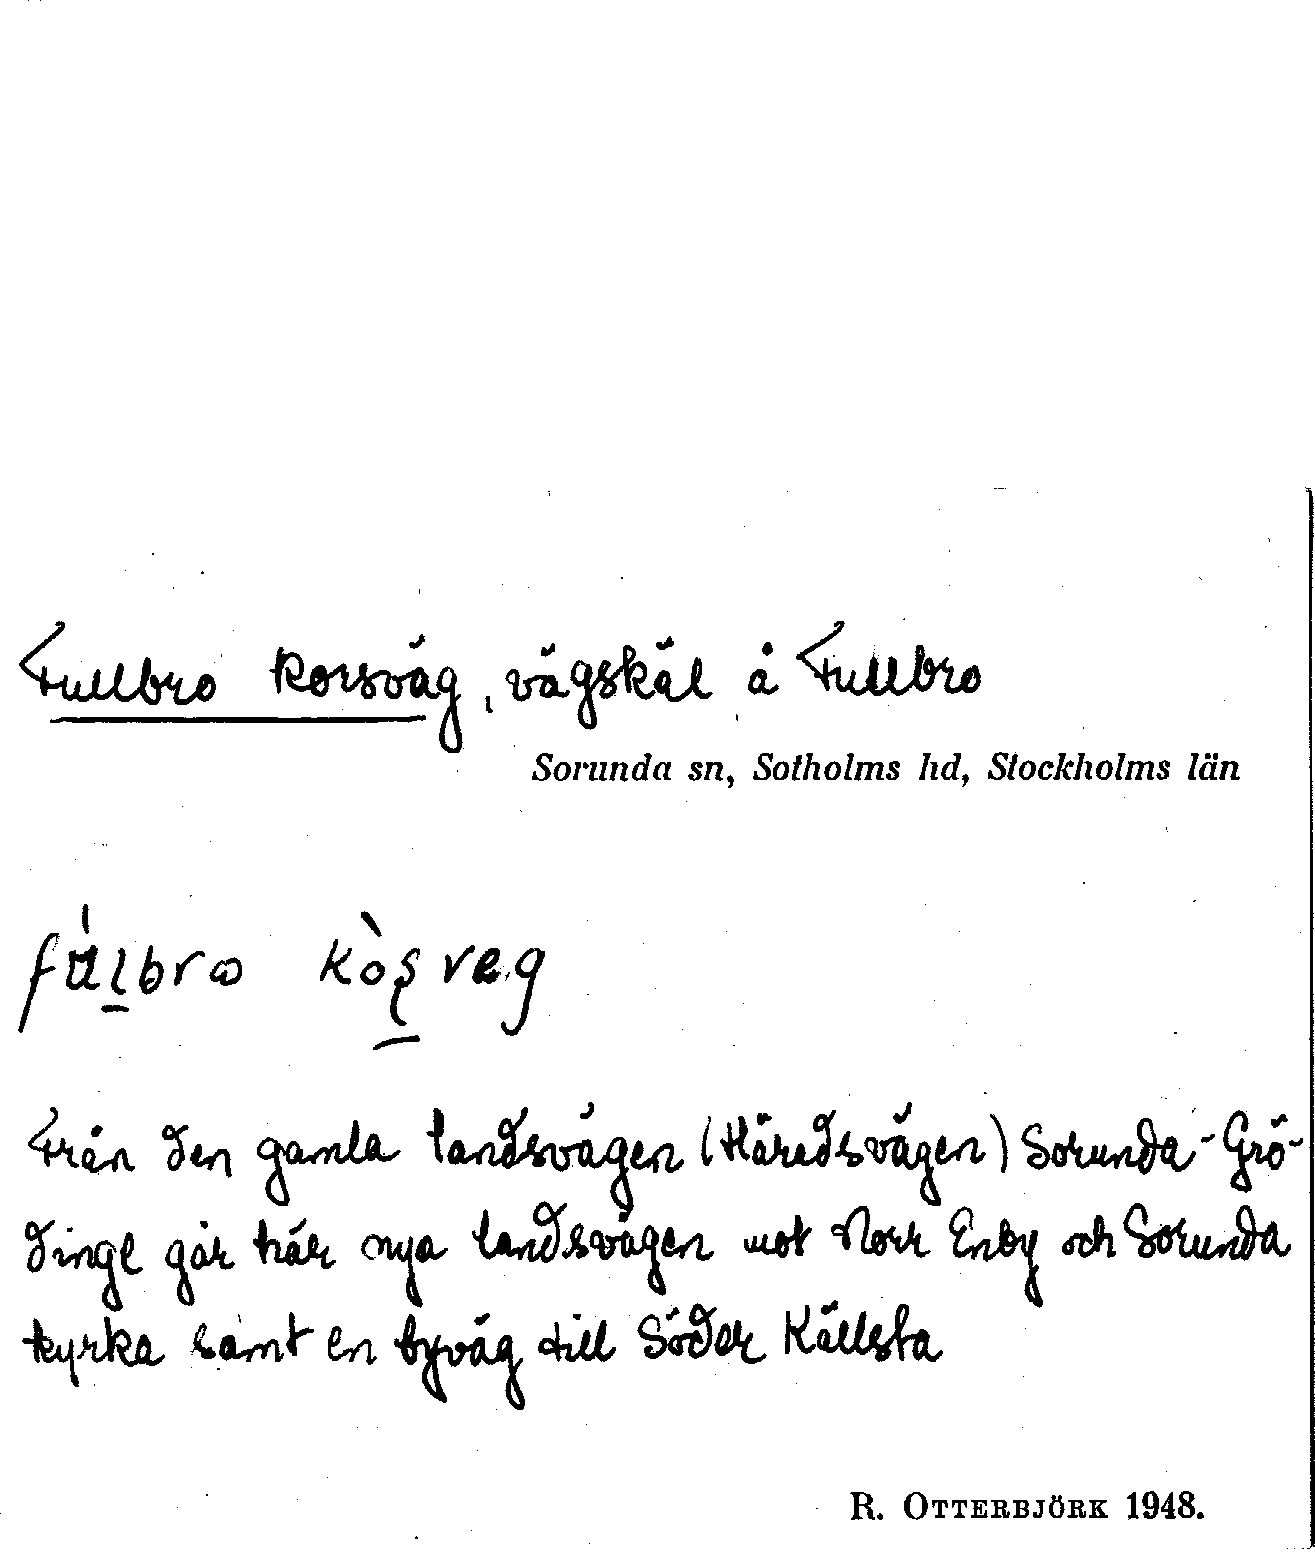 Fullbro korsväg, vägskäl å Fullbro
Sorunda sn, Sotholms hd, Stockholms län
Från den gamla landsvägen (Häredsvägen) Sorunda - Grö-
dinge går här nya landsvägen mot Norr Enby och Sorunda
kyrka samt en byväg till Söder Källsta
R. OTTERBJÖRK 1948.